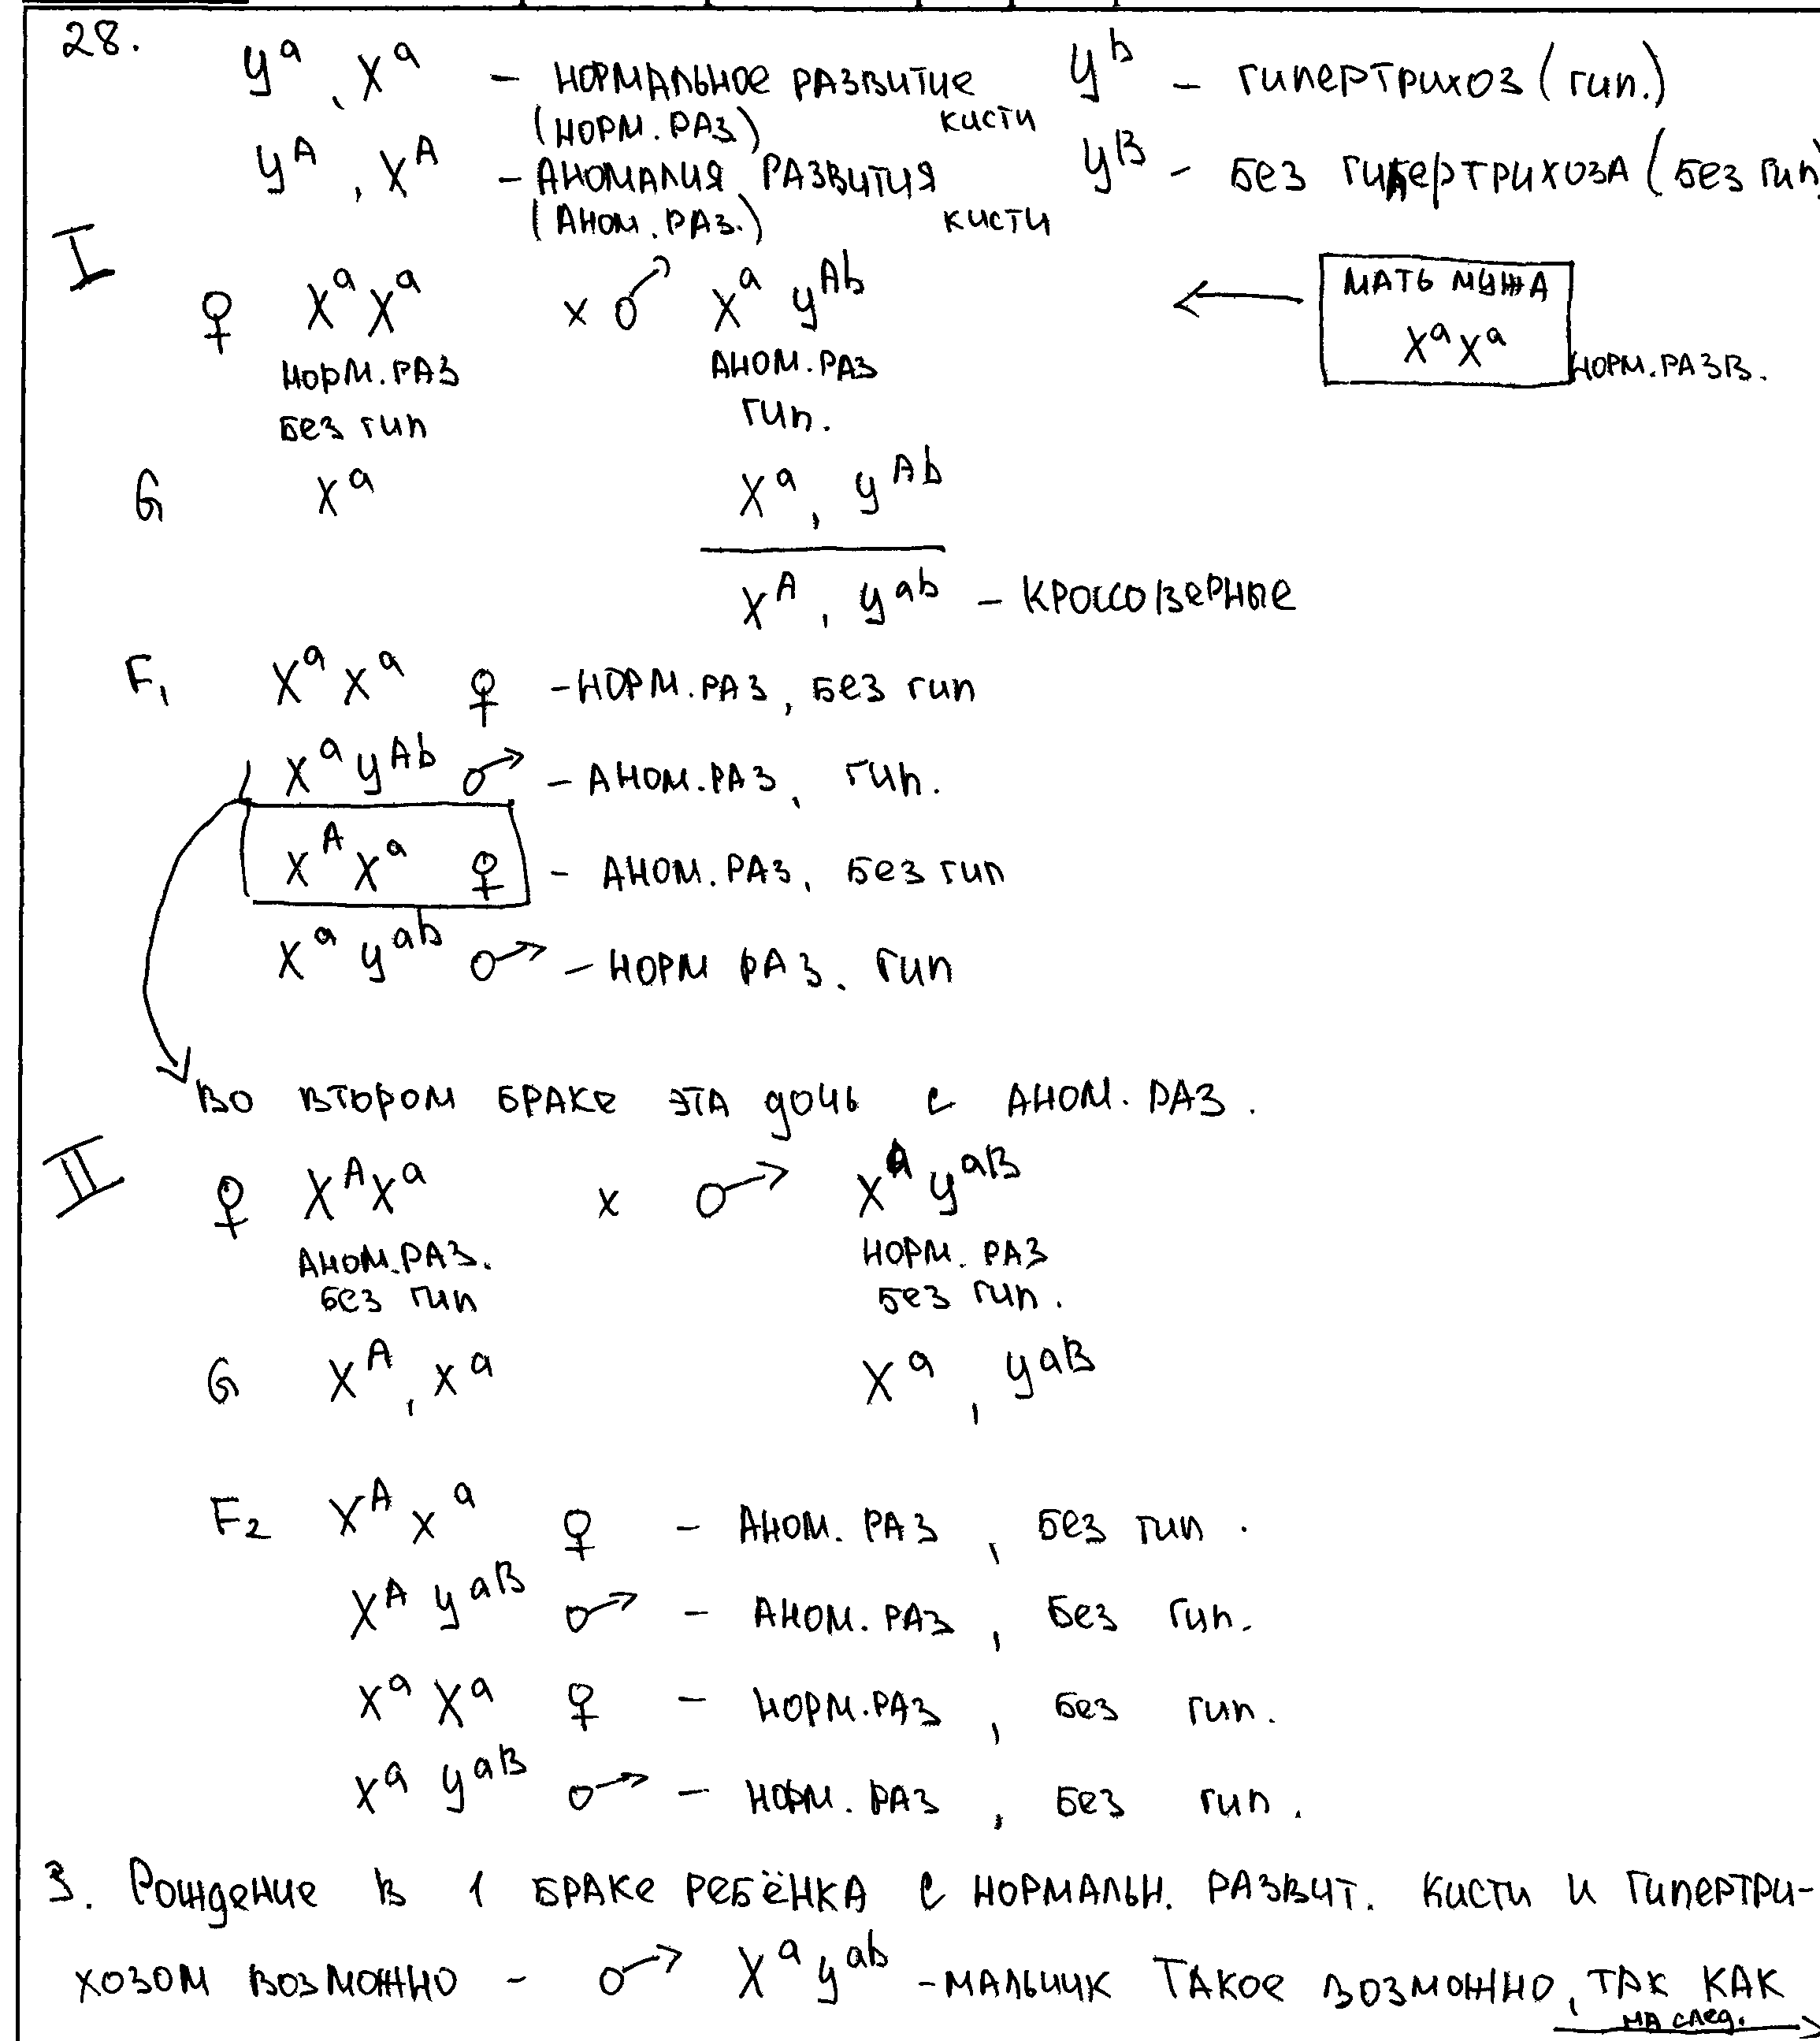 28.
Yᵃ, Xᵃ – нормальное развитие кисти (норм. раз) Yᵇ – гипертрихоз (гип.)
Yᴬ, Xᴬ – аномалия развития кисти (аном. раз.) Yᴮ – без гипертрихоза (без гип)
I
♀ XᵃXᵃ x ♂ Xᵃ Yᴬᵇ ← мать мужа XᵃXᵃ норм. разв.
норм. раз аном. раз
без гип гип.
G Xᵃ Xᵃ, Yᴬᵇ
Xᴬ, Yᵃᵇ – кроссоверные
F₁ XᵃXᵃ ♀ – норм. раз, без гип
XᵃYᴬᵇ ♂ – аном. раз, гип.
XᴬXᵃ ♀ – аном. раз, без гип
XᵃYᵃᵇ ♂ – норм раз. гип
во втором браке эта дочь с аном. раз.
II
♀ XᴬXᵃ x ♂ X Yᵃᴮ
аном. раз. норм. раз
без гип без гип.
G Xᴬ, Xᵃ Xᵃ, Yᵃᴮ
F₂ XᴬXᵃ ♀ – аном. раз, без гип.
XᴬYᵃᴮ ♂ – аном. раз, без гип.
XᵃXᵃ ♀ – норм. раз, без гип.
XᵃYᵃᴮ ♂ – норм. раз, без гип.
3. Рождение в 1 браке ребёнка с нормальн. развит. кисти и гипертри-
хозом возможно – ♂ XᵃYᵃᵇ – мальчик такое возможно, так как
на след. →